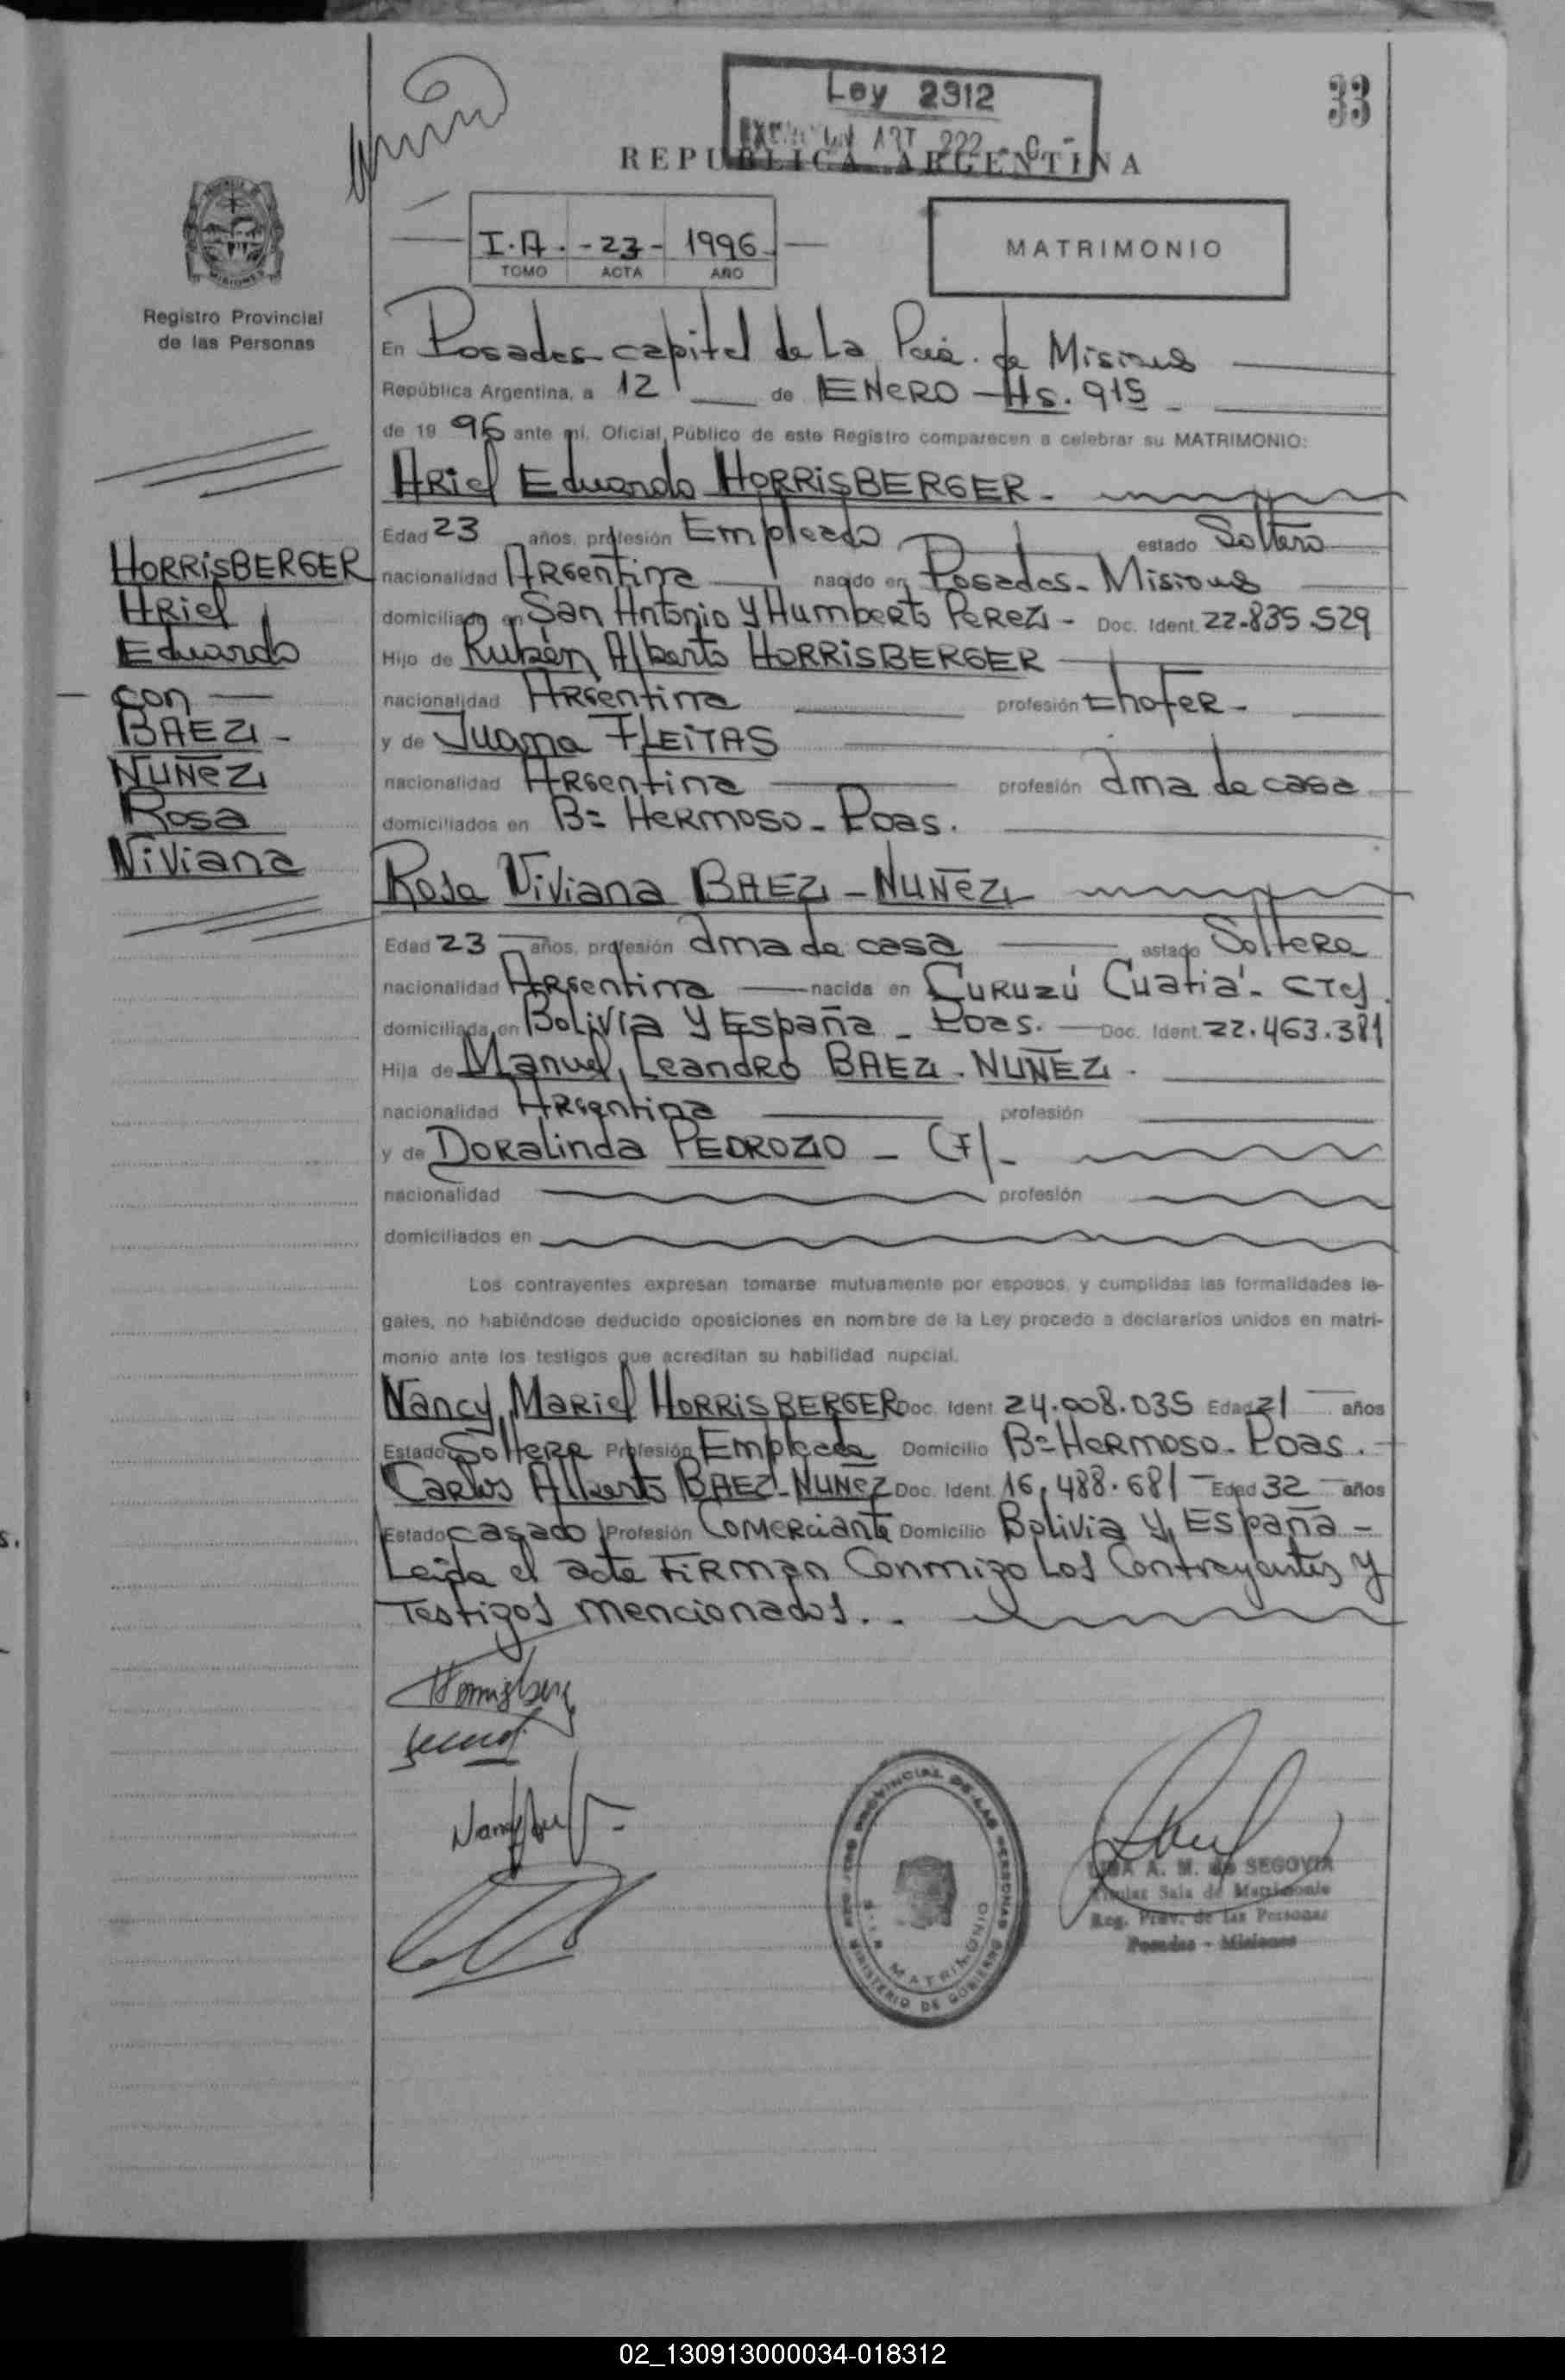 33
Ley 2912
ART 222
REPUBLICA ARGENTINA
I.A. - 23 - 1996
TOMO ACTA AÑO
MATRIMONIO
Registro Provincial
de las Personas
HORRiSBERGER
ARiel
Eduardo
— con —
BAEZ -
NUÑEZ
Rosa
Viviana
En Posadas capital de La Pcia. de Misiones
República Argentina, a 12 de ENERO - Hs. 915 -
de 1996 ante mi, Oficial Público de este Registro comparecen a celebrar su MATRIMONIO:
ARiel Eduardo HORRiSBERGER -
Edad 23 años, profesión Empleado estado Soltero
nacionalidad ARgentina nacido en Posadas - Misiones
domiciliado en San Antonio y Humberto PeReZ - Doc. Ident. 22.835.529
Hijo de Rubén Alberto HORRiSBERGER
nacionalidad ARgentina profesión chofeR -
y de Juana FLEiTAS
nacionalidad ARgentina profesión ama de casa
domiciliados en B= HeRmoso - Poas.
Rosa Viviana BAEZ - NUÑeZ
Edad 23 años, profesión ama de casa estado SolteRa
nacionalidad ARgentina nacida en CuRuzú Cuatiá - CTes.
domiciliada en Bolivia y España - Poas. Doc. Ident. 22.463.381
Hija de Manuel Leandro BAEZ - NUÑEZ -
nacionalidad ARgentina profesión
y de DoRalinda PEDROZO - (F) -
nacionalidad profesión
domiciliados en
Los contrayentes expresan tomarse mutuamente por esposos, y cumplidas las formalidades le-
gales, no habiéndose deducido oposiciones en nombre de la Ley procedo a declararlos unidos en matri-
monio ante los testigos que acreditan su habilidad nupcial.
Nancy MaRiel HORRiSBERGER Doc. Ident. 24.008.035 Edad 21 años
Estado SolteRa Profesión Empleada Domicilio B= HeRmoso - Poas. -
Carlos Alberto BAEZ - NUÑeZ Doc. Ident. 16.488.681 - Edad 32 años
Estado casado Profesión ComeRciante Domicilio Bolivia y España -
Leida el acta FiRman Conmigo Los Contrayentes y
Testigos mencionados. . -
REGISTRO PROVINCIAL DE LAS PERSONAS
MATRIMONIO
MINISTERIO DE GOBIERNO
A. M. de SEGOVIA
Titular Sala de Matrimonio
Reg. Prov. de las Personas
Posadas - Misiones
02_130913000034-018312